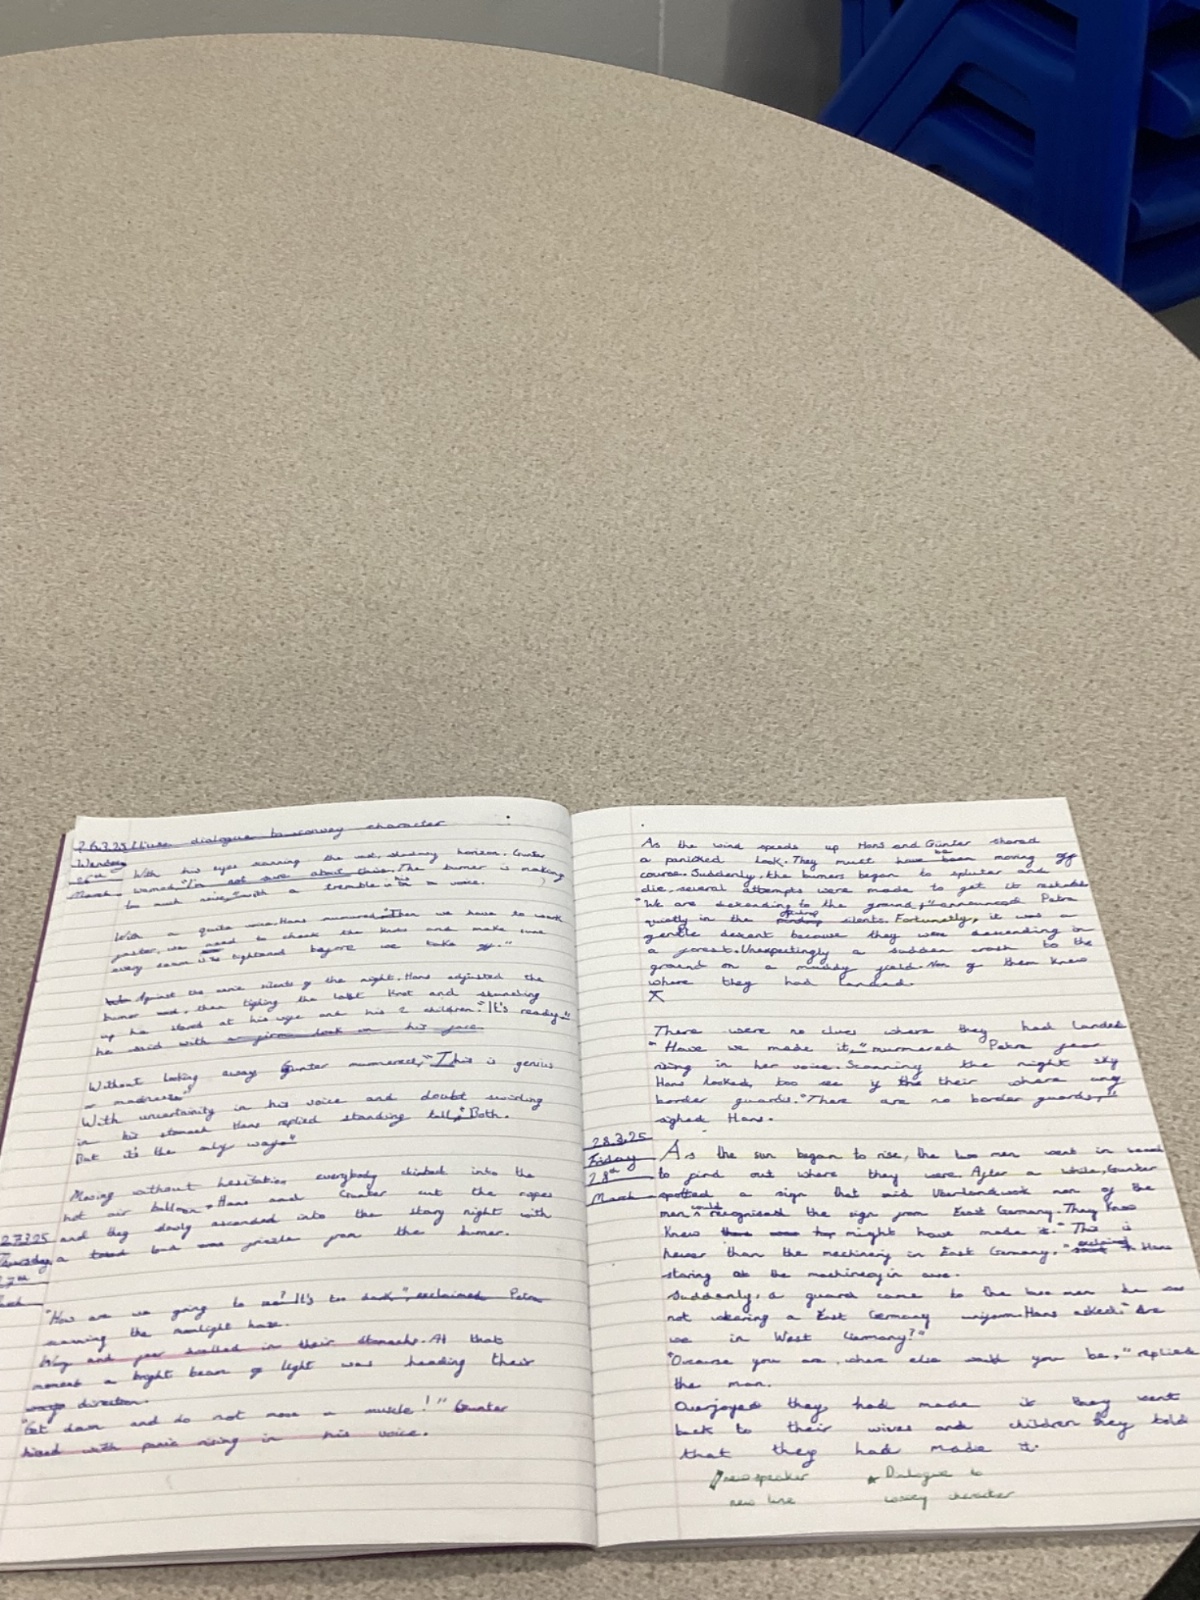 26.3.25 L.I: use dialogue to convey character
Wensday
26th
March
With his eyes scanning the vast, shadowy horizon, Gunter
warned "I'm not sure about this. The burner is making
to much noise," with a tremble in his voice.
With a quite voice, Hans mumured "Then we have to work
faster, we need to check the knots and make sure
every seam is tightened before we take off."
Against the eerie silents of the night, Hans adjusted the
burner and, then the last knot and standing
up he stared at his wife and his 2 children. "It's ready"
he said with a look on his face.
Without looking away Gunter mumered, "This is genius
or madness"
With uncertainty in his voice and doubt swirling
in his stomach Hans replied standing tall, "Both.
But it's the only way"
Moving without hesitation everybody climbed into the
hot air balloon. Hans and Gunter cut the ropes
and they slowly ascended into the stary night with
a but fizzle from the burner.
27.3.25
Thursday
27th
"How are we going to see? It's too dark", exclaimed Petra
scanning the moonlight haze.
Worry and fear dwelled in their stomachs. At that
moment a bright beam of light was heading their
direction.
"Get down and do not move a muscle!" Gunter
hissed with panic rising in his voice.
As the wind speeds up Hans and Günter shared
a panicked look. They must have been moving off
course. Suddenly, the burners began to splutter and
die, several attempts were made to get it restarted
"We are descending to the ground," announced Petra
quietly in the silents. Fortunetly, it was a
gentle descent because they were descending in
a forest. Unexpectingly a sudden crash to the
ground on a muddy field. Non of them knew
where they had landed.
There were no clues where they had landed
"Have we made it," murmered Petra fear
rising in her voice. Scanning the night sky
Hans looked, too see if the their where any
border guards. "There are no border guards,"
sighed Hans.
28.3.25
Friday
28th
March
As the sun began to rise, the two men went in
to find out where they were. After a while, Gunter
spotted a sign that said non of the
men could recognised the sign from East Germany. They knew
knew might have made it. "This is
newer than the mechinery in East Germany," exclaimed Hans
staring at the machinery in awe.
Suddenly, a guard came to the two men he was
not wearing a East Germany uniform. Hans asked, "Are
we in West Germany?"
"Ofcourse you are, where else would you be," replied
the man.
Overjoyed they had made it they went
back to their wives and children they told
that they had made it.
new speaker
new line
Dialogue to
convey character